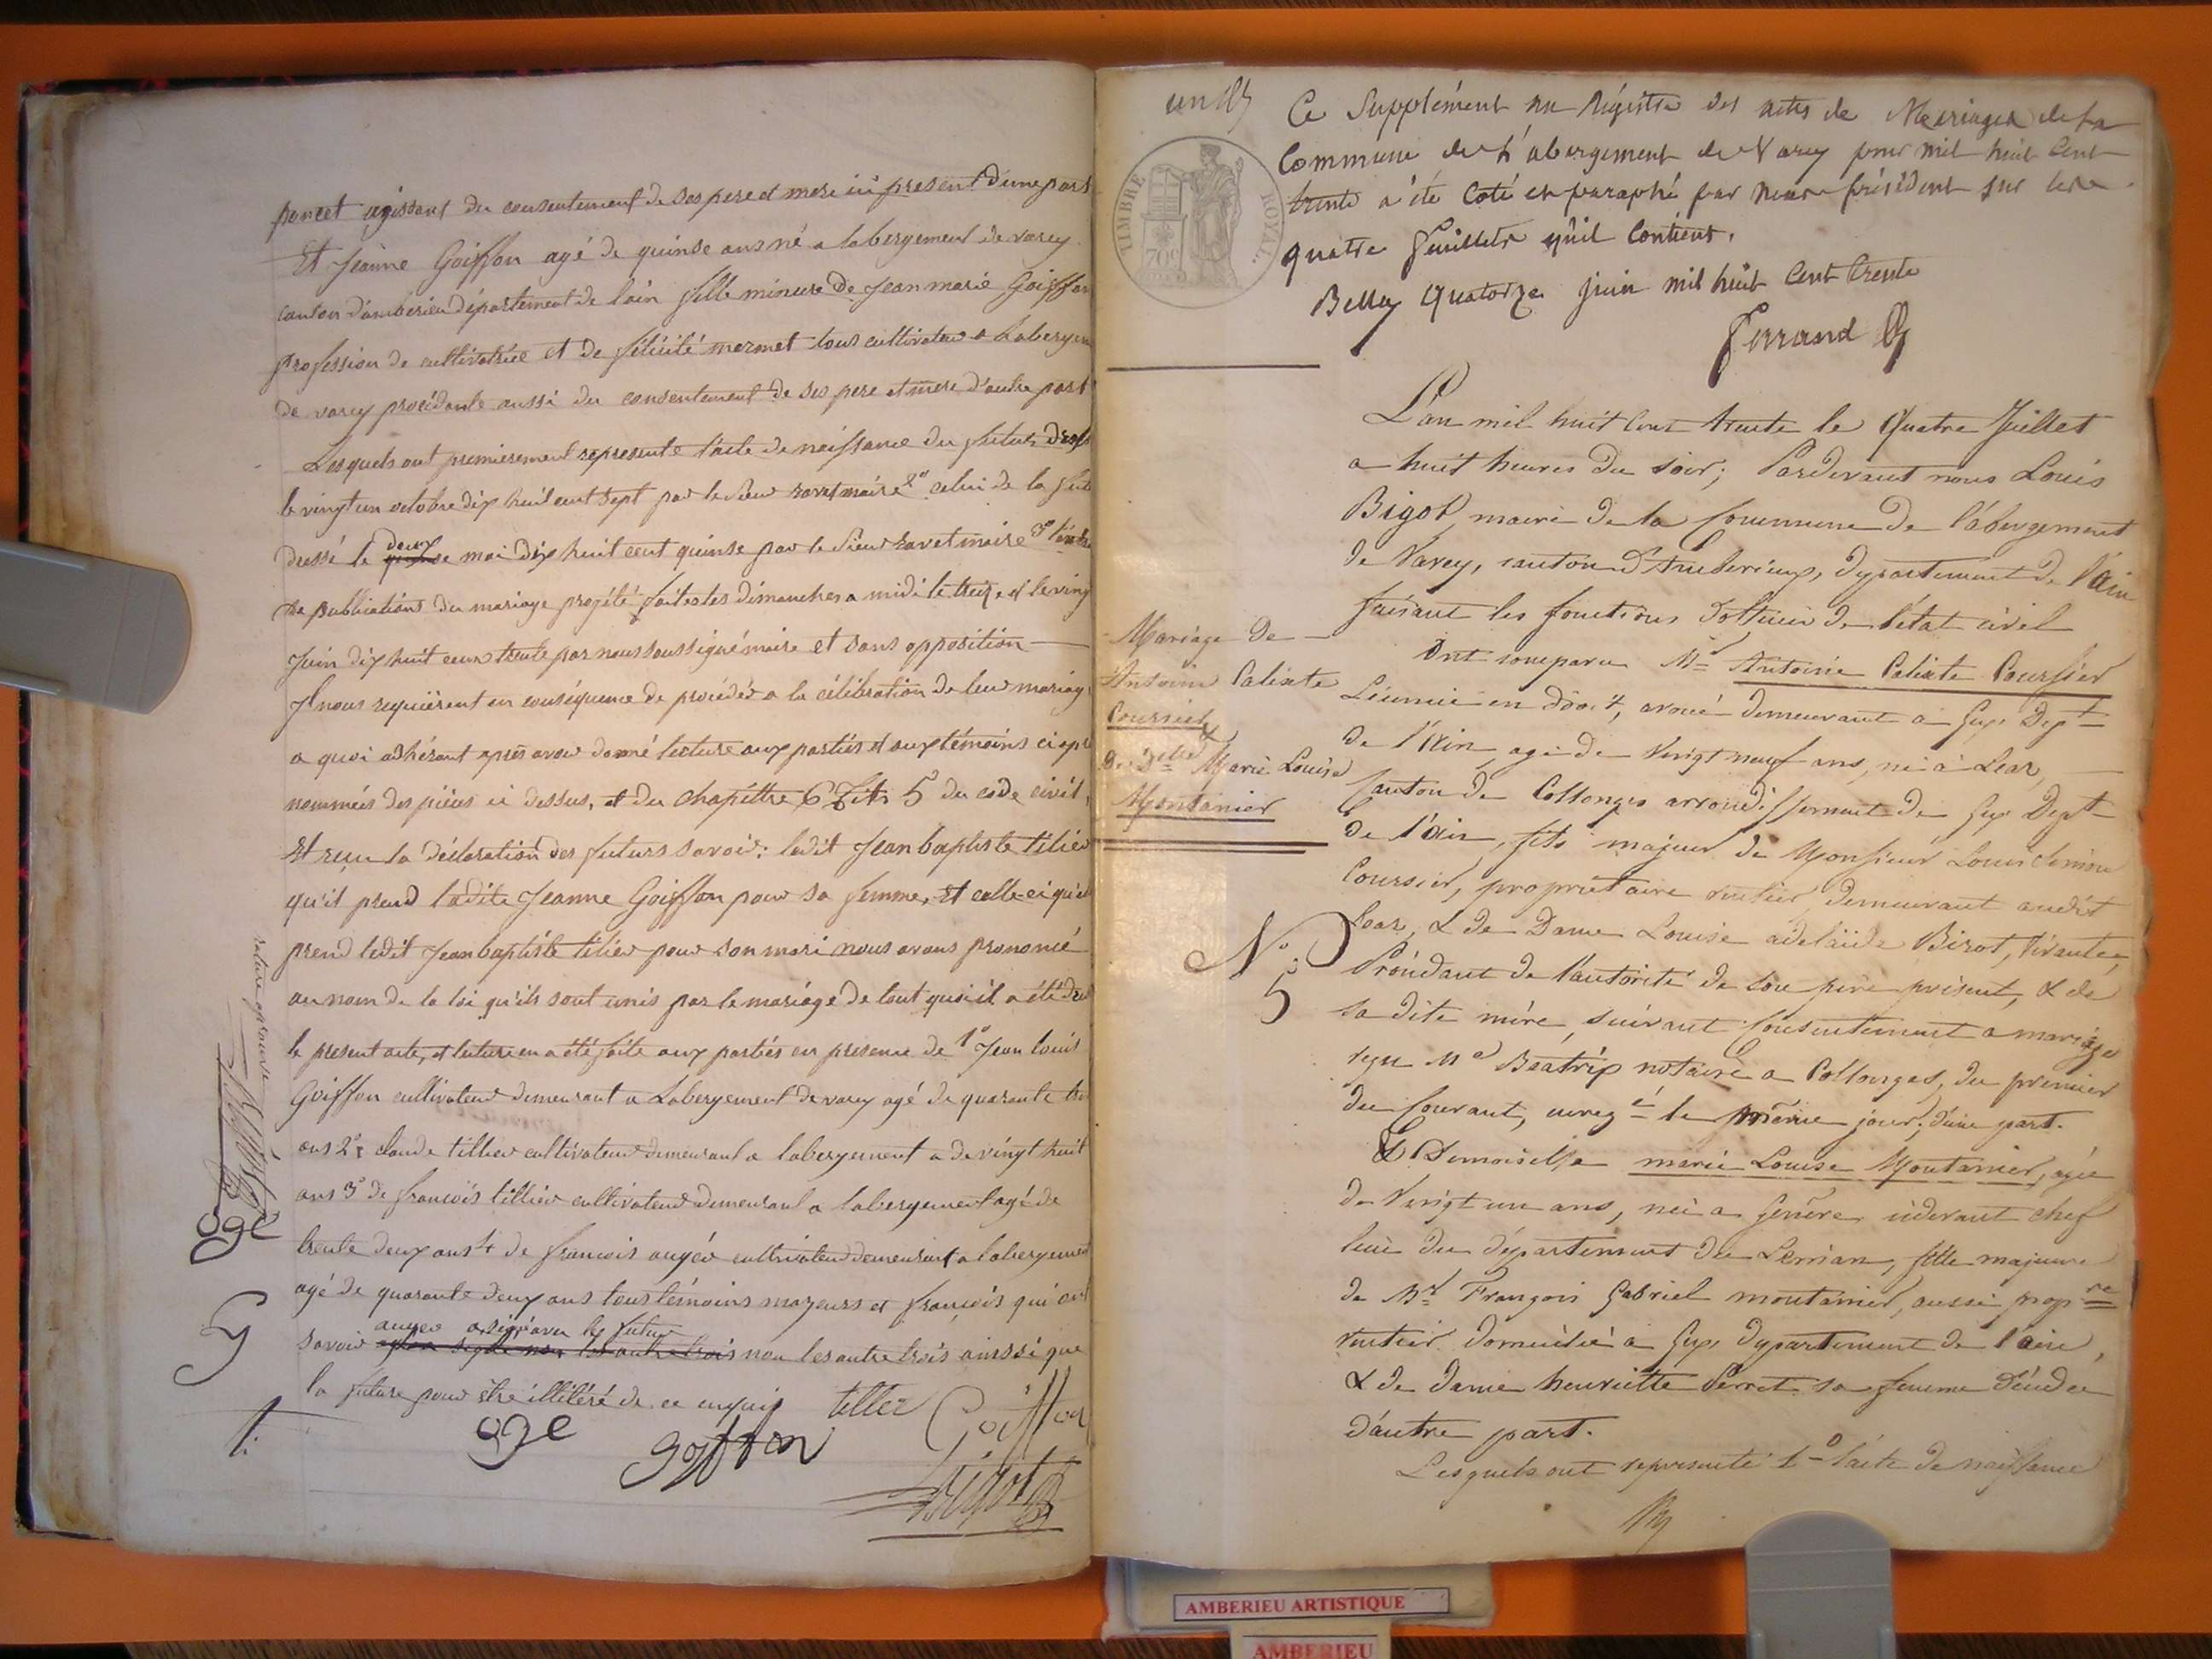 poncet agissant du consentement de ses pere et mere ici present d'une part
Et Jeanne Goiffon agé de quinse ans né a labergement de varey
canton d'amberieu département de lain fille mineure de Jean marie Goiffon
profession de cultivatrice et de félicité mermet tous cultivateur a Labergem
de varey procédante aussi du consentement de ses pere et mere d'autre part
Lesquels ont premierement representé l'acte de naissance du futur dressé
le vingt un octobre dix huit cent sept par le sieur ravet maire 2º celui de la fut
dressé le deux mai dix huit cent quinse par le sieur ravet maire 3º
de publications du mariage projété faites les dimanches a midi le treize et le ving
Juin dix huit cent trente par nous soussigné maire et sans opposition
Il nous requièrent en conséquence de procéder a la célébration de leur mariage
a quoi adhérant après avoir donné lecture aux parties et aux témoins ci apr
nommées des pièces ci dessus, et du chapittre 6 titr 5 du code civil,
Et reçu la déclaration des futurs savoir: ledit Jean baptiste tilier
qu'il prend ladite Jeanne Goiffon pour sa femme, et celle-ci qu'el
prend ledit Jean baptiste tilier pour son mari nous avons prononcé
au nom de la loi qu'ils sont unis par le mariage de tout quoi il a été dre
le present acte, et lecture en a été faite aux parties en presence de 1º Jean louis
Goiffon cultivateur demeurant a Labergement de varey agé de quarante tr
ans 2º claude tillier cultivateur demeurant a labergement a de vingt huit
ans 3º de françois tillier cultivateur demeurant a labergement agé de
trente deux ans 4 de francois augér cultivateur demeurant a labergement
agé de quarante deux ans tous témoins mageurs et françois qui ont
savoir auger a signé avec le futur non les autre trois ainssi que
la future pour être illitéré de ce enquis
tiller Goiffon
oge goffon
Bigot
rature aprouvée
oge
g
t.
un
TIMBRE ROYAL
70c
Ce Supplément au Régistre des actes de Mariages de la
Commune de L'abergement de Varey pour mil huit Cent
trente a été Coté et paraphé par nous président sur les
quatre feuillets qu'il Contient.
Belley Quatorze juin mil huit Cent trente
Ferrand
L'an mil huit Cent trente le Quatre Juillet
a huit heures Du soir; Pardevant nous Louis
Bigot, maire de la Commune De l'abergement
de Varey, canton D'Amberieux, département de l'Ain
faisant les fonctions d'officier de l'état civil
Mariage de
Antoine Calixte
Coursier
&
De Delle Marie Louise
Montanier
Nº 5
Ont comparu Mr Antoine Calixte Coursier
Licencié en Droit, avoué demeurant a Gex Dept
de l'Ain, agé de Vingt neuf ans, né à Leaz,
Canton de Collonges arrondissement de Gex Dept
de l'Ain, fils majeur de Monsieur Louis
Coursier, propriétaire rentier, demeurant audit
Leaz, & de Dame Louise adelaïde Bizot, vivante,
Procédant de l'autorité de son père présent, & de
sa dite mère, suivant Consentement a mariage
reçu Me Béatrix notaire a Collonges, du premier
du Courant, enregé le même jour, d'une part.
Et Demoiselle marie Louise Montanier, agée
de Vingt un ans, née a Genève cidevant chef
lieu du département du Leman, fille majeure
de Mr François Gabriel montanier, aussi propre
rentier domicilié a Gex département de l'ain,
& de dame henriette Perret sa femme décédée
d'autre part.
Lesquels ont representé 1º l'acte de naissance
AMBERIEU ARTISTIQUE
AMBERIEU